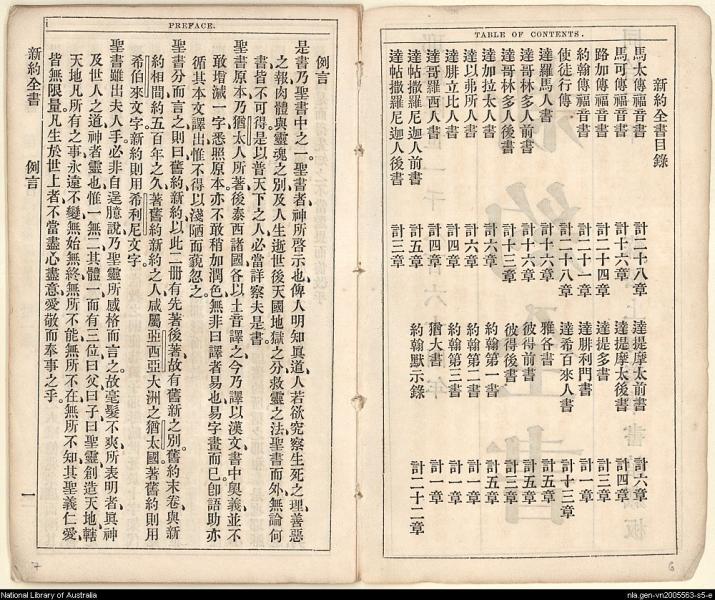 TABLE OF CONTENTS.
新約全書目錄
馬太傳福音書 計二十八章
馬可傳福音書 計十六章
路加傳福音書 計二十四章
約翰傳福音書 計二十一章
使徒行傳 計二十八章
達羅馬人書 計十六章
達哥林多人前書 計十六章
達哥林多人後書 計十三章
達加拉太人書 計六章
達以弗所人書 計六章
達腓立比人書 計四章
達哥羅西人書 計四章
達帖撒羅尼迦人前書 計五章
達帖撒羅尼迦人後書 計三章
達提摩太前書 計六章
達提摩太後書 計四章
達提多書 計三章
達腓利門書 計一章
達希百來人書 計十三章
雅各書 計五章
彼得前書 計五章
彼得後書 計三章
約翰第一書 計五章
約翰第二書 計一章
約翰第三書 計一章
猶大書 計一章
約翰默示錄 計二十二章
6
i
PREFACE.
例言
是書乃聖書中之一、聖書者神所啓示也、俾人明知眞道、人若欲究察生死之理、善惡
之報、肉體與靈魂之別、及人生逝世後、天國地獄之分、救靈之法、聖書而外、無論何
書皆不可得、是以普天下之人、必當詳察夫是書。
聖書原本乃猶太人所著、後泰西諸國、各以土音譯之、今乃譯以漢文、書中奧義、並不
敢增減一字、悉照原本、亦不敢稍加潤色、無非曰譯者易也、易字畫而已、卽語助亦
循其本文譯出、惟不得以淺陋而藐忽之。
聖書分而言之、則曰舊約新約、以此二册有先著後著、故有舊新之別、舊約末卷與新
約相間約五百年之久、著舊約新約之人、咸屬亞西亞大洲之猶太國、著舊約則用
希伯來文字、新約則用希利尼文字。
聖書雖出夫人手、必非自逞臆說、乃聖靈所感格而言之、故毫髮不爽、所表明者眞神
及世人之道、神者靈也、惟一無二、其體一而有三位、曰父曰子曰聖靈、創造天地、轄
天地凡所有之事、永遠不變、無始無終、無所不能、無所不在、無所不知、其聖義仁愛、
皆無限量、凡生於世上者、不當盡心盡意、愛敬而奉事之乎。
新約全書 例言 一
7
National Library of Australia
nla.gen-vn2005563-s5-e